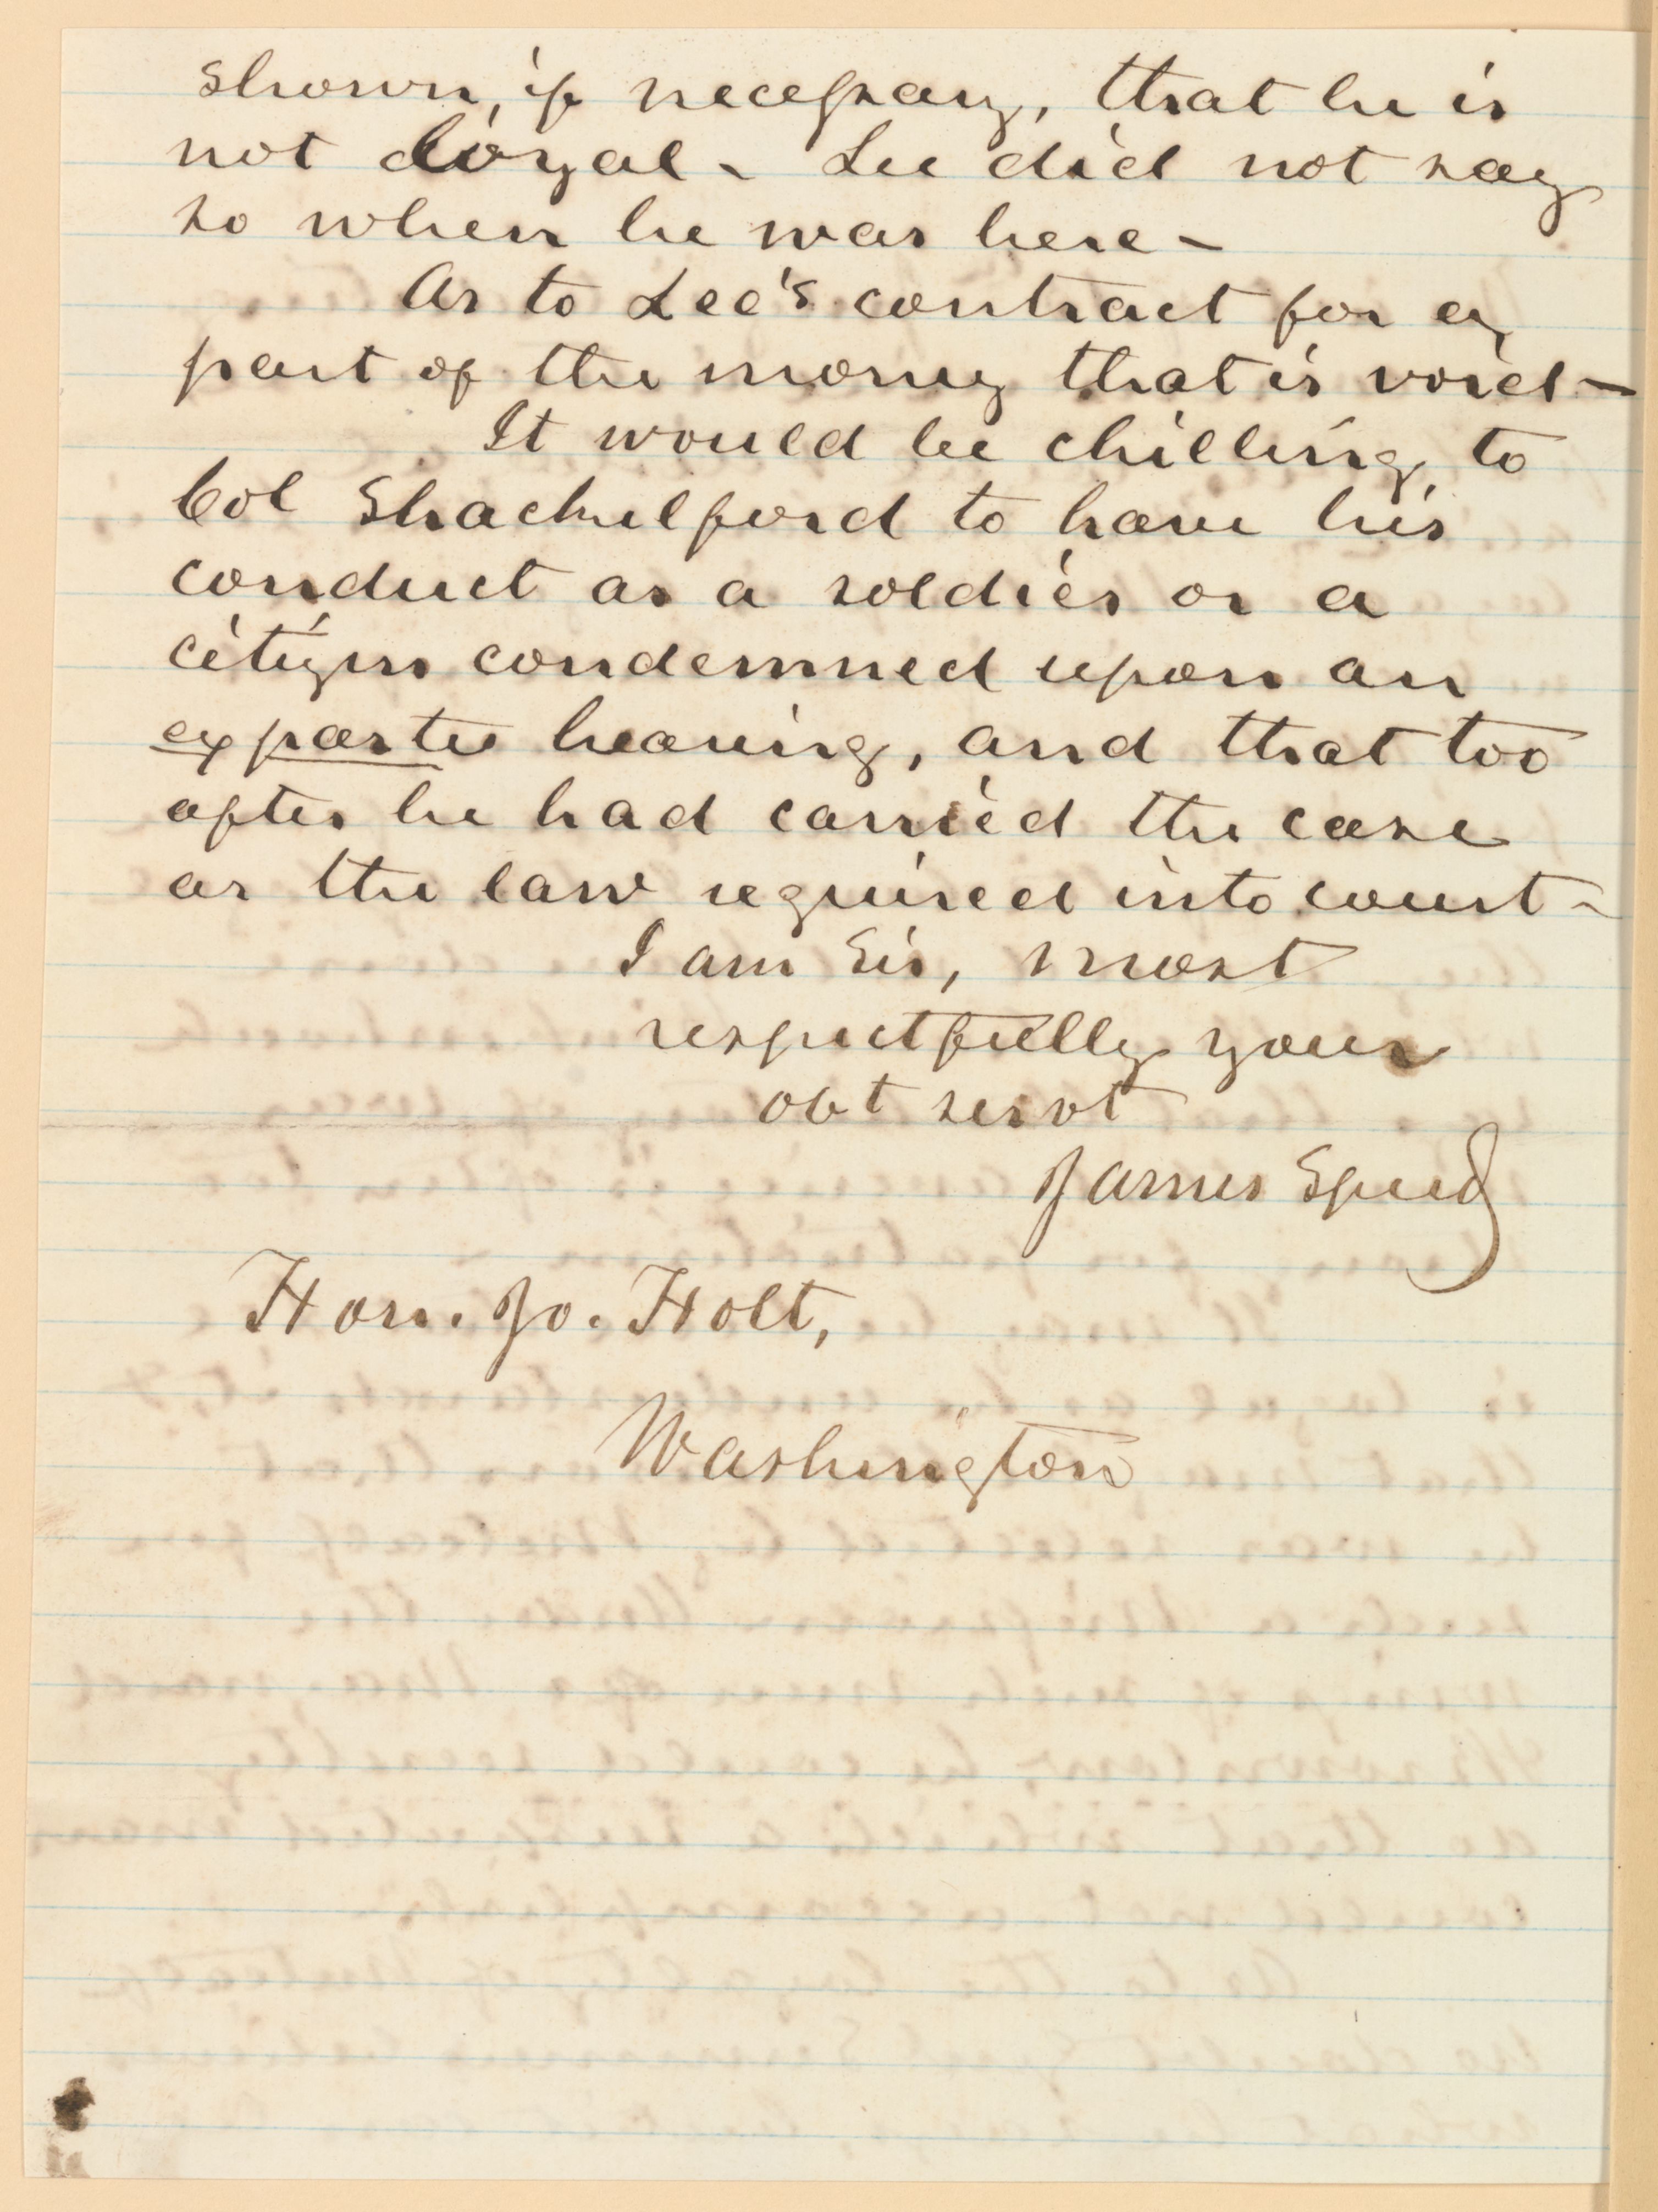 shown, if necessary, that he is
not loyal - Lee did not say
so when he was here -
As to Lee's contract for a
part of the money that is void -
It would be chilling to
Col Shackelford to have his
conduct as a soldier or a
citizen condemned upon an
exparte hearing, and that too
after he had carried the case
as the law required into court -
I am Sir, most
respectfully your
obt servt
James Speed
Hon. Jo. Holt,
Washington